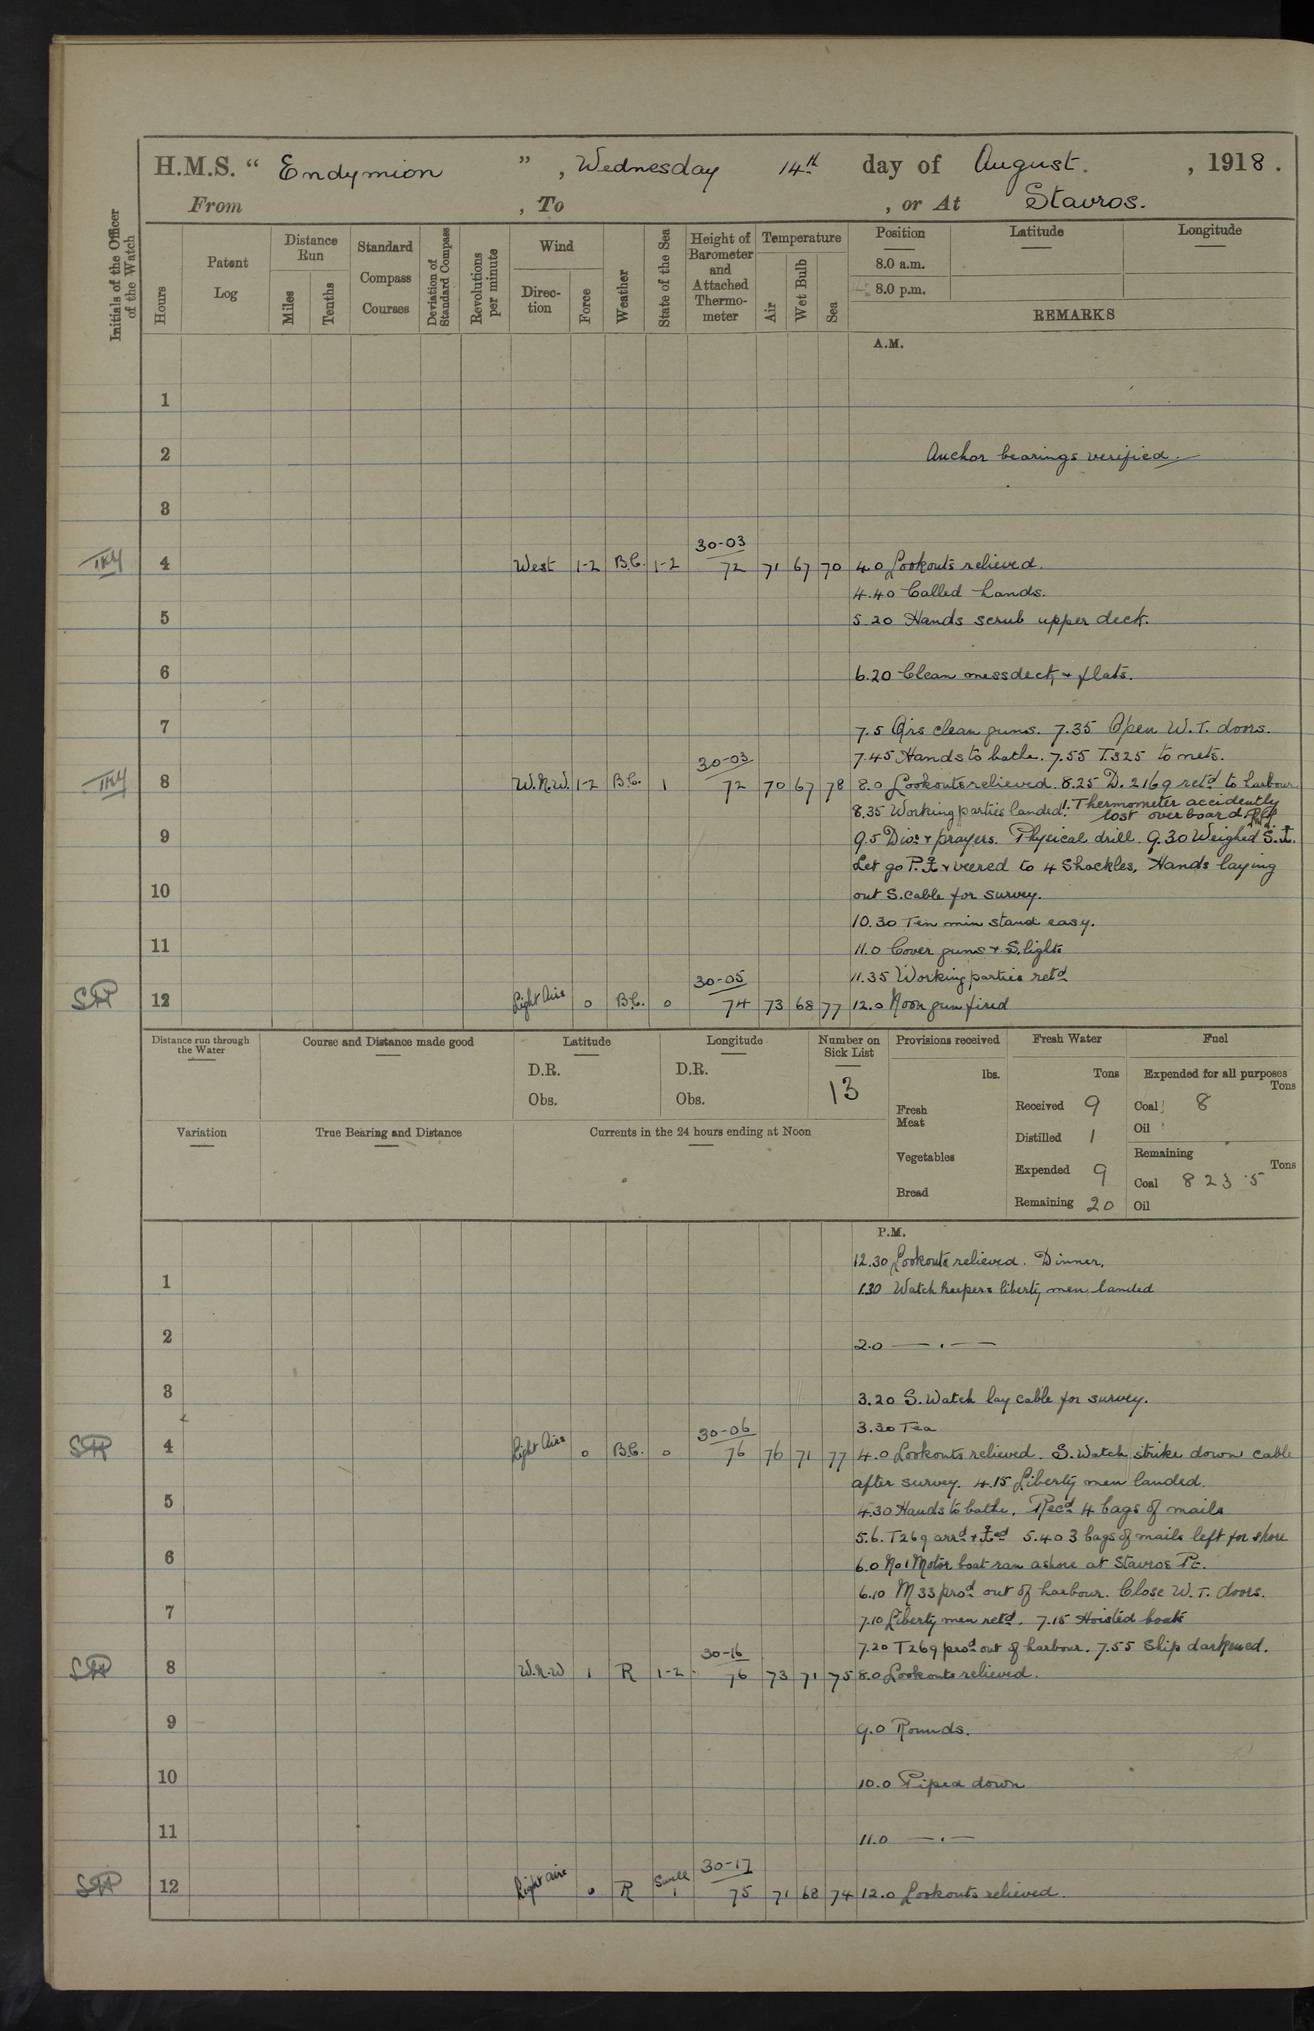 H.M.S. " Endymion ", Wednesday 14th day of August. , 1918.
From , To , or At Stavros.
Initials of the Officer of the Watch
Hours
Patent Log
Distance Run
Miles
Tenths
Standard Compass Courses
Deviation of Standard Compass
Revolutions per minute
Wind
Direction
Force
Weather
State of the Sea
Height of Barometer and Attached Thermometer
Temperature
Air
Wet Bulb
Sea
Position
8.0 a.m.
8.0 p.m.
Latitude
Longitude
REMARKS
A.M.
1
2 Anchor bearings verified.
3
30-03
4 West 1-2 B.C. 1-2 72 71 67 70 4.0 Lookouts relieved.
4.40 Called hands.
5 5.20 Hands scrub upper deck.
6 6.20 Clean messdeck, & flats.
7 7.5 Qrs clean guns. 7.35 Open W.T. doors.
30-03 7.45 Hands to bathe. 7.55 T.325 to nets.
8 W.N.W. 1-2 B.C. 1 72 70 67 78 8.0 Lookouts relieved. 8.25 D.2169 retd to harbour
8.35 Working parties landed. 1. Thermometer accidently
lost overboard
9 9.5 Divs & prayers. Physical drill. 9.30 Weighed S.⚓.
Let go P.⚓ & veered to 4 Shackles, Hands laying
10 out S.cable for survey.
10.30 Ten min stand easy.
11 11.0 Cover guns & S.lights
30-05 11.35 Working parties retd
12 Light Airs 0 B.C. 0 74 73 68 77 12.0 Noon gun fired
Distance run through the Water
Course and Distance made good
Latitude
D.R.
Obs.
Longitude
D.R.
Obs.
Number on Sick List
13
Provisions received
lbs.
Fresh Meat
Vegetables
Bread
Fresh Water
Tons
Received 9
Distilled 1
Expended 9
Remaining 20
Fuel
Expended for all purposes
Tons
Coal 8
Oil
Remaining
Tons
Coal 823.5
Oil
Variation
True Bearing and Distance
Currents in the 24 hours ending at Noon
P.M.
12.30 Lookouts relieved. Dinner.
1 1.30 Watch keepers liberty men landed
2 2.0 — . —
3 3.20 S. Watch lay cable for survey.
30-06 3.30 Tea
4 Light Airs 0 B.C. 0 76 76 71 77 4.0 Lookouts relieved. S. Watch strike down cable
after survey. 4.15 Liberty men landed.
5 4.30 Hands to bathe. Recd 4 bags of mails
5.6. T269 arrd & ⚓ed 5.40 3 bags of mails left for shore
6 6.0 No 1 Motor boat ran ashore at Stavros Pt.
6.10 M33 procd out of harbour. Close W.T. doors.
7 7.10 Liberty men retd. 7.15 Hoisted boats
30-16 7.20 T269 procd out of harbour. 7.55 Ship darkened.
8 W.N.W 1 R 1-2 76 73 71 75 8.0 Lookouts relieved.
9 9.0 Rounds.
10 10.0 Piped down
11 11.0 — . —
30-17
12 Light airs 0 R Swell 1 75 71 68 74 12.0 Lookouts relieved.